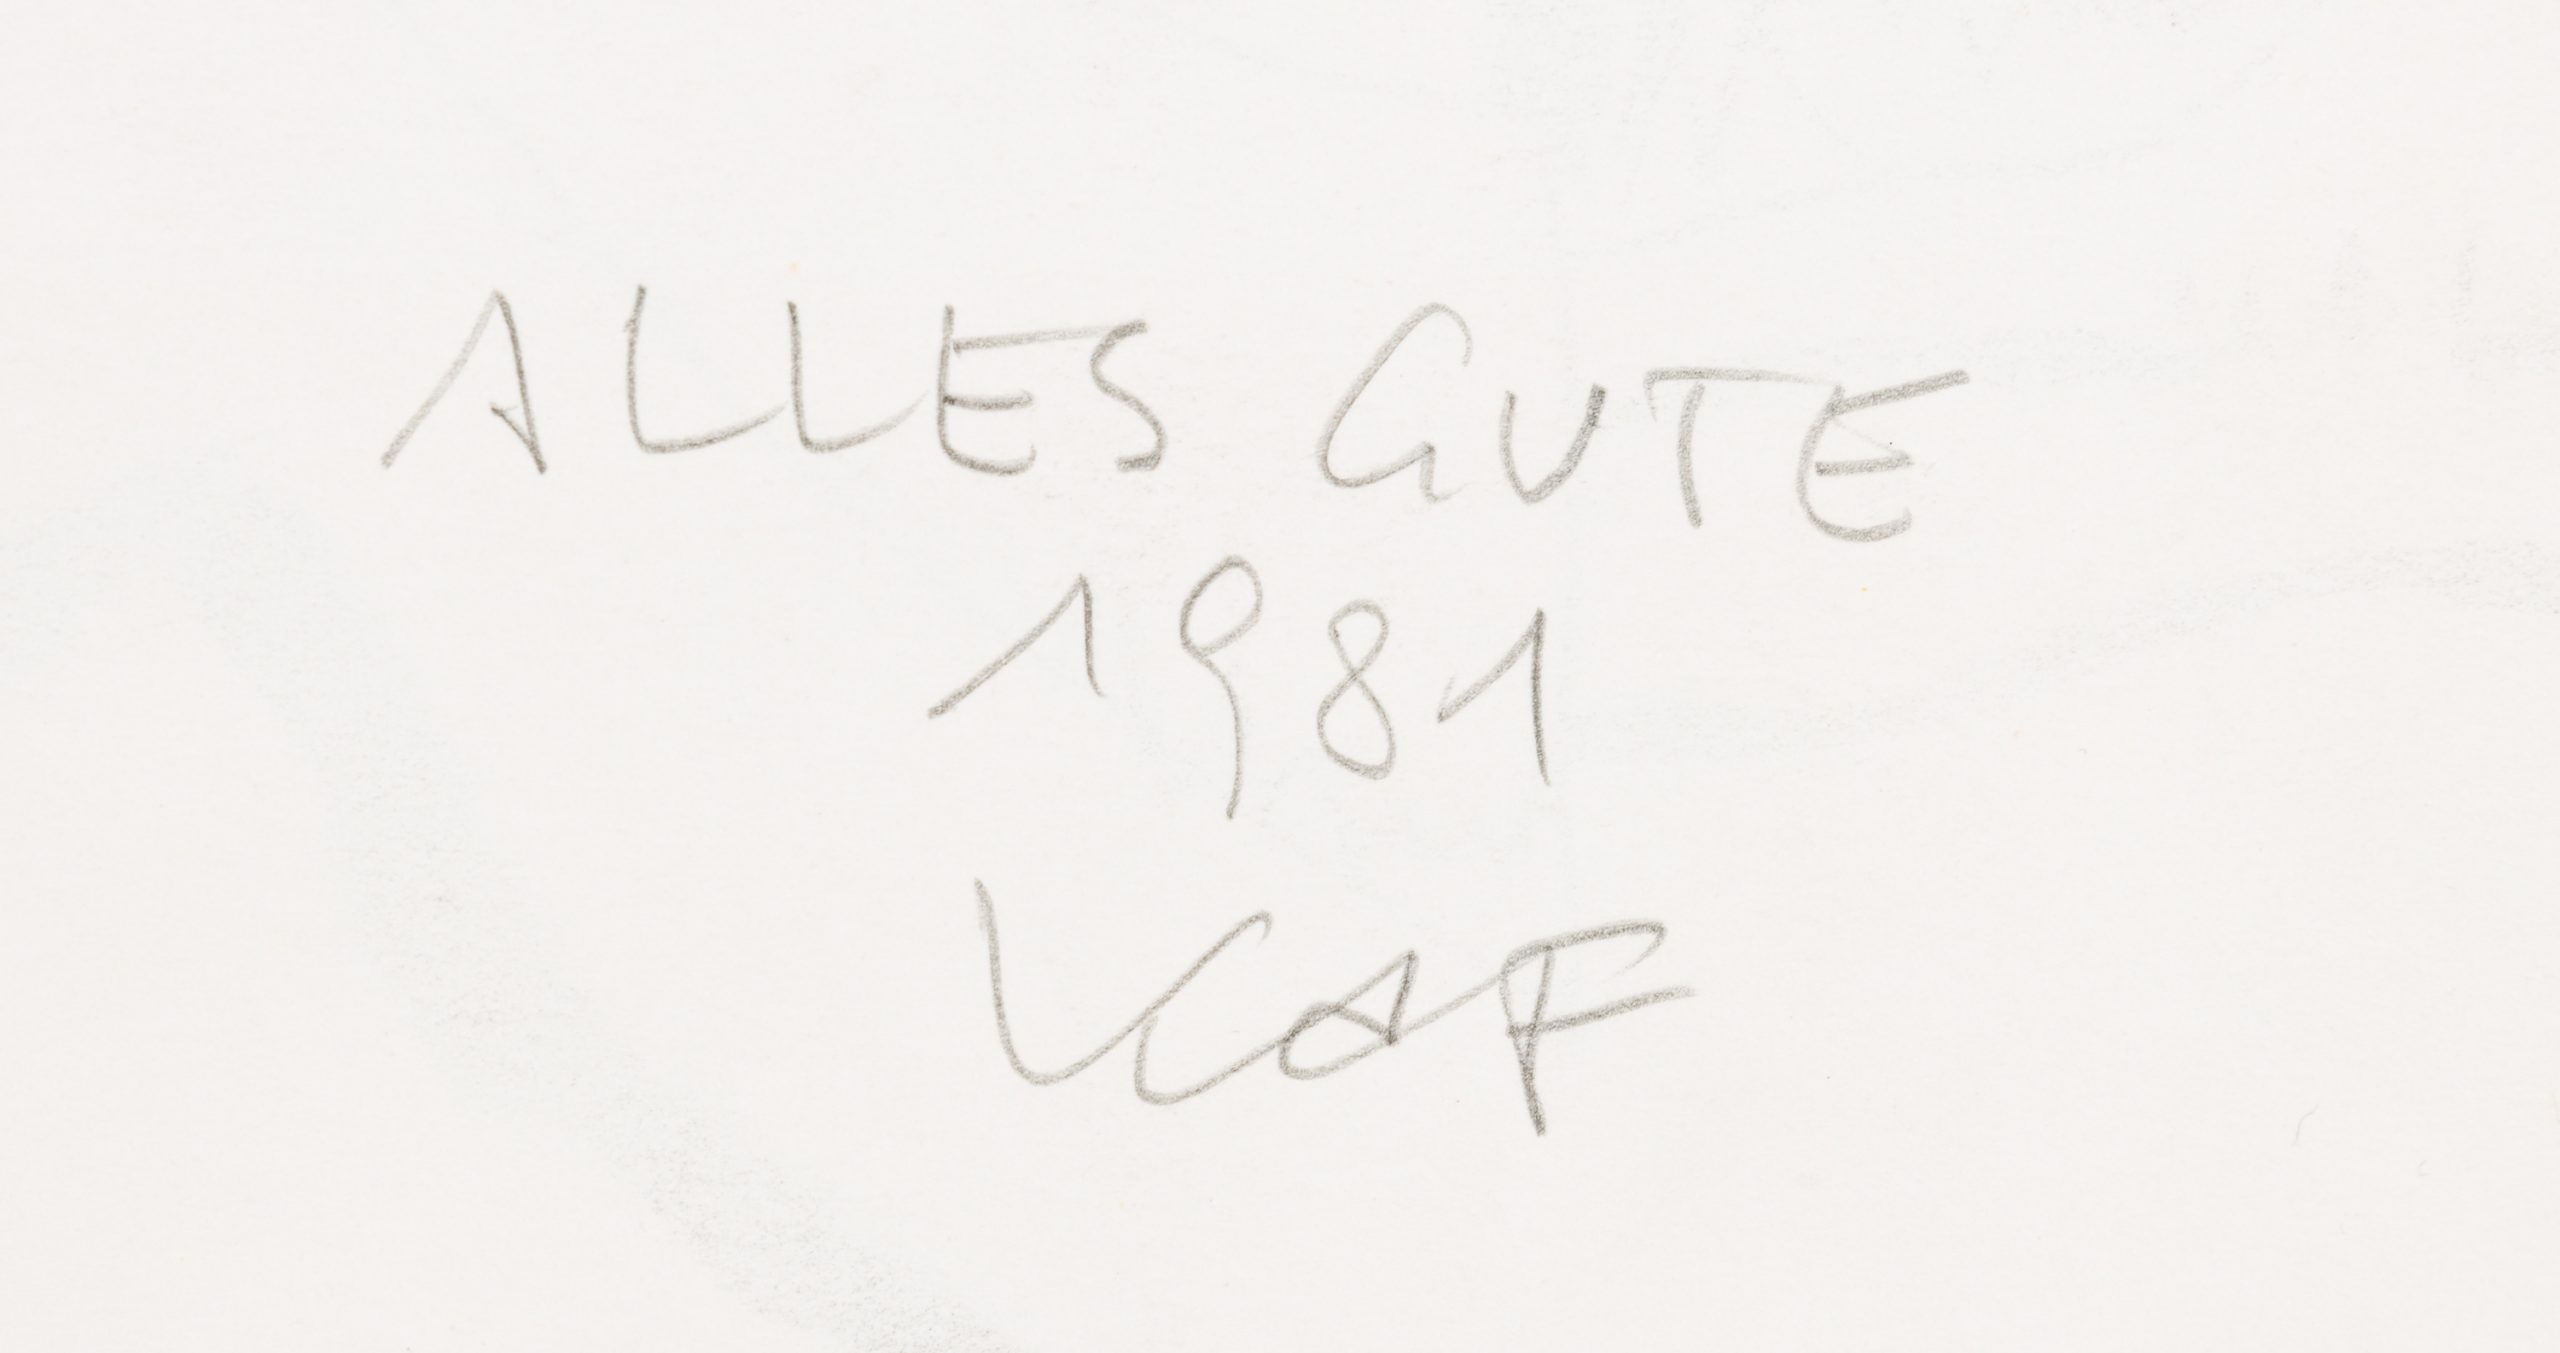 ALLES GUTE
1981